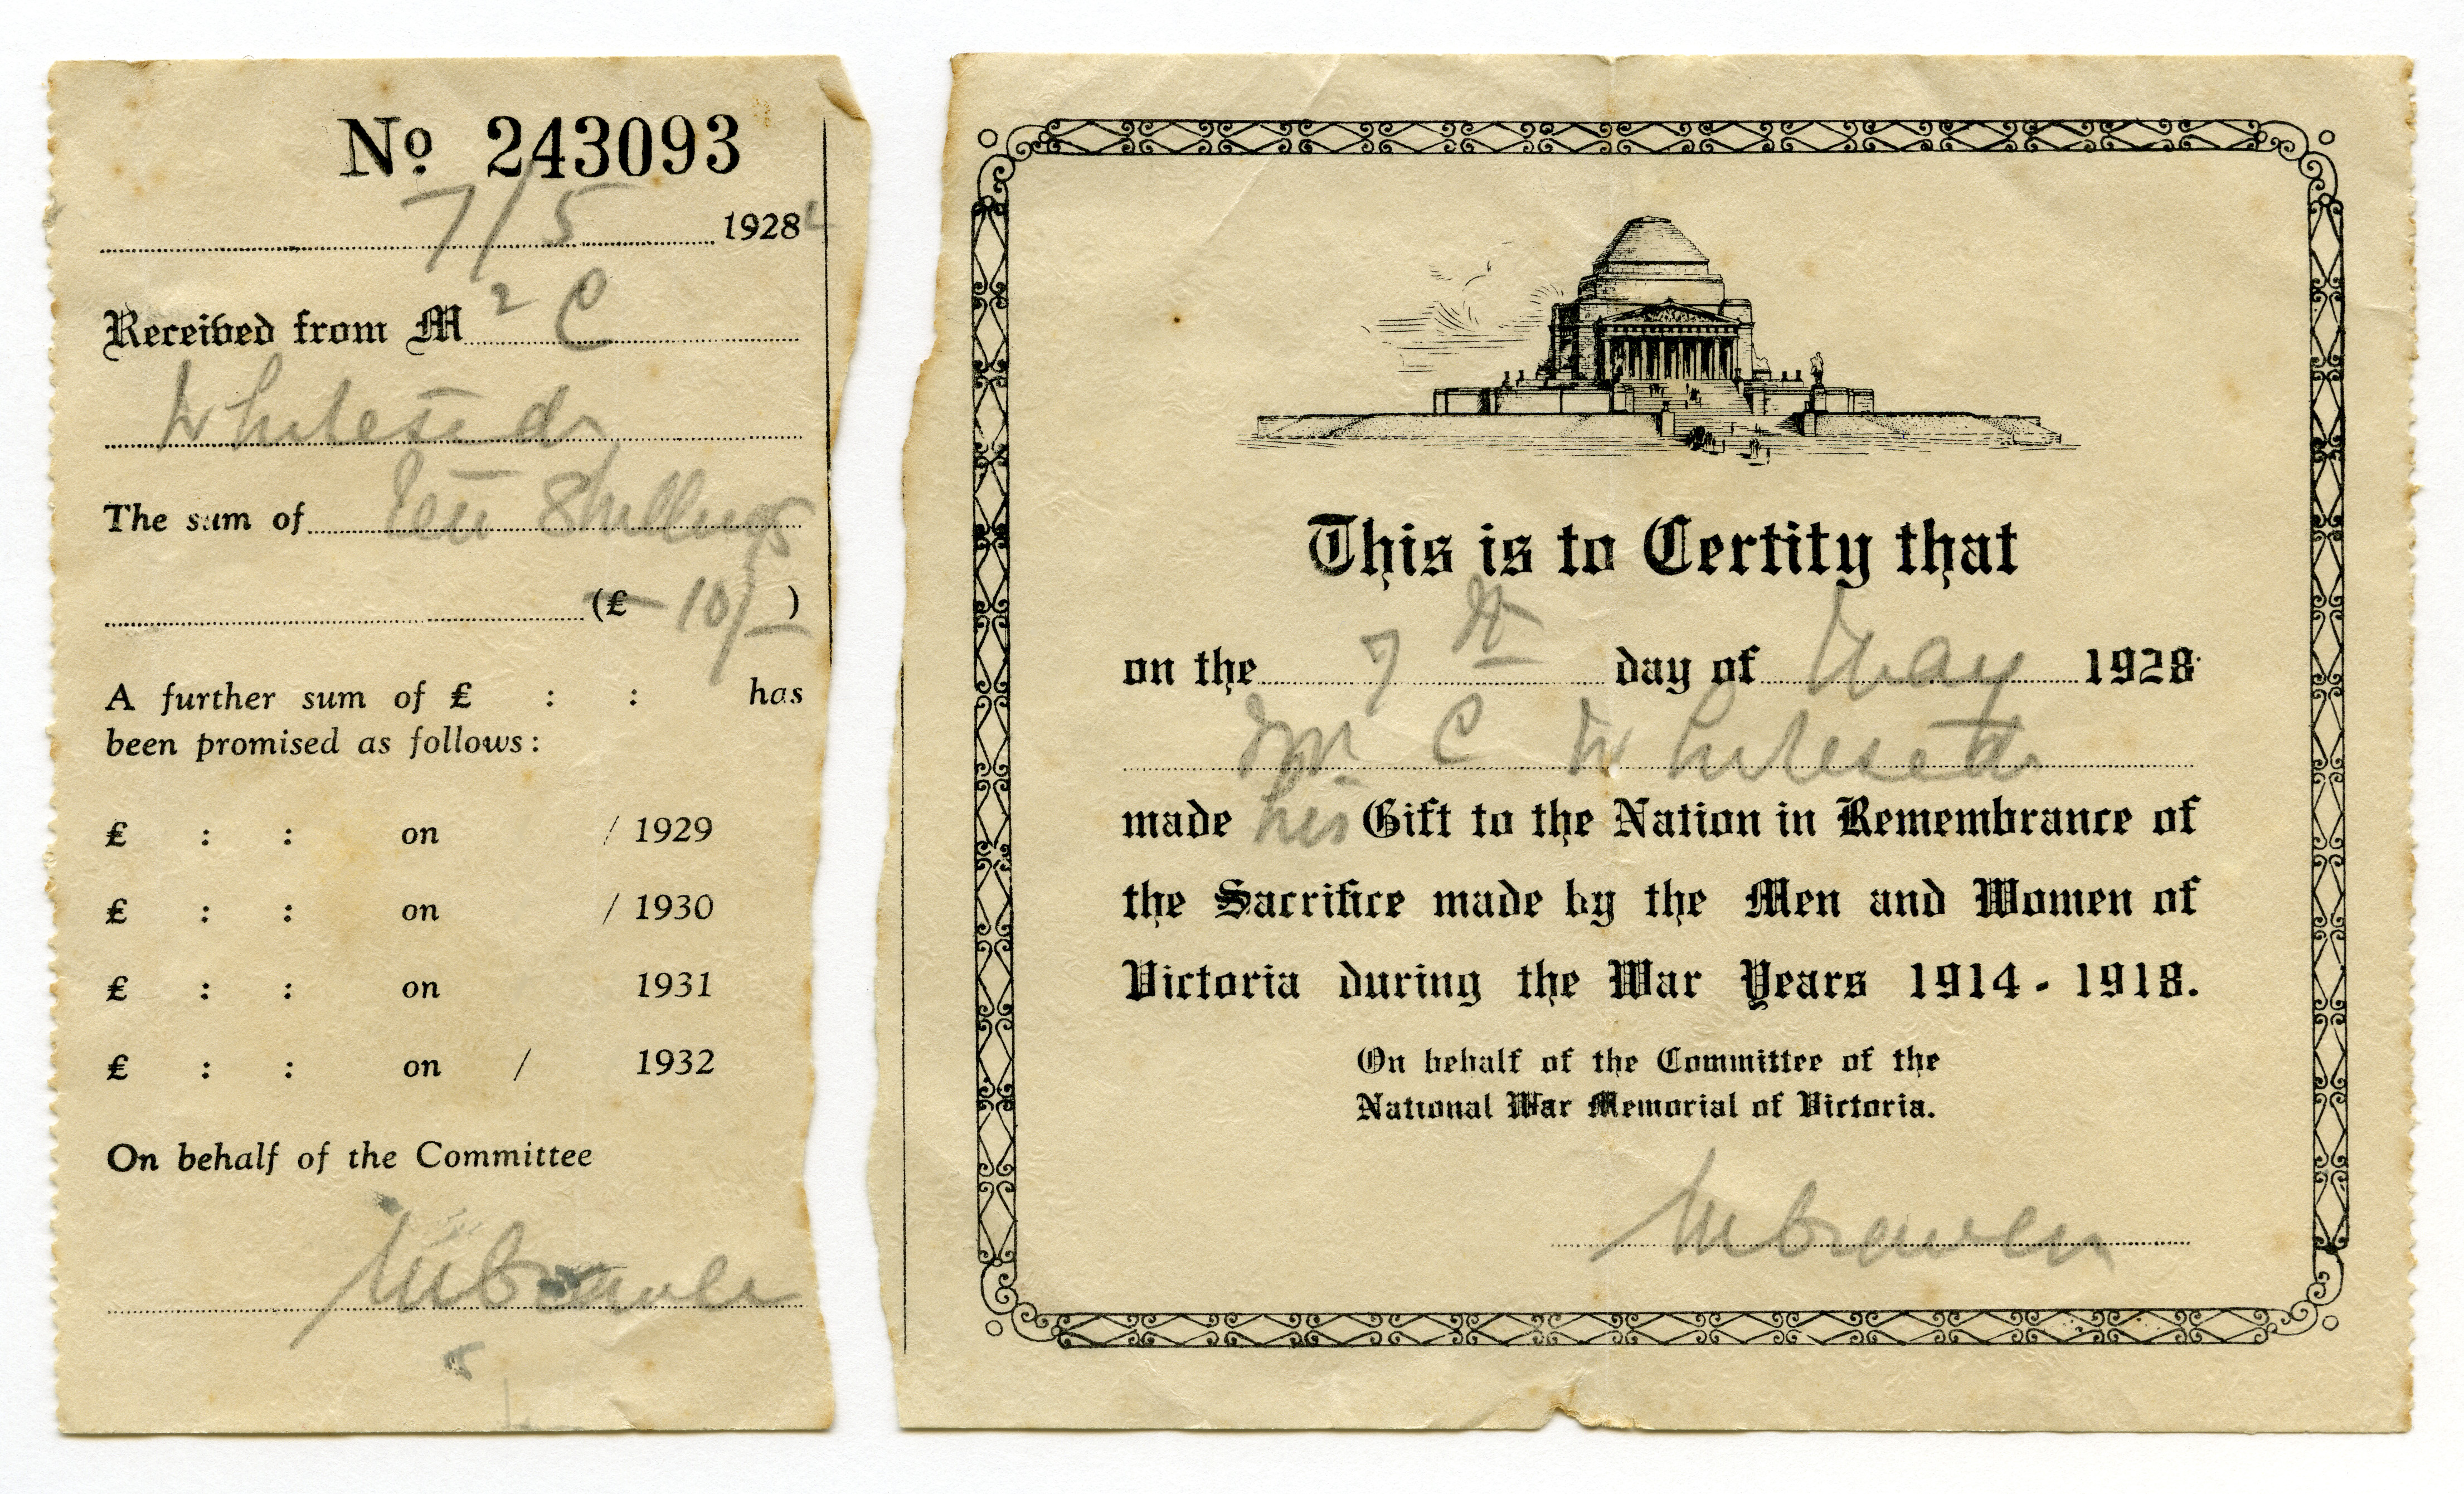 No 243093
7/5 1928
Received from Mr C
Whiteside
The sum of Ten Shillings
(£ — 10/- )
A further sum of £ : : has
been promised as follows:
£ : : on / 1929
£ : : on / 1930
£ : : on 1931
£ : : on / 1932
On behalf of the Committee
This is to Certify that
on the 7th day of May 1928
Mr C Whiteside
made his Gift to the Nation in Remembrance of
the Sacrifice made by the Men and Women of
Victoria during the War Years 1914 - 1918.
On behalf of the Committee of the
National War Memorial of Victoria.